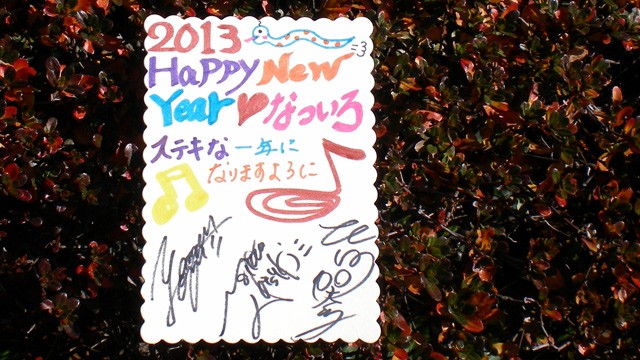 2013
HaPPy New
Year♥なついろ
ステキな一年に
なりますように